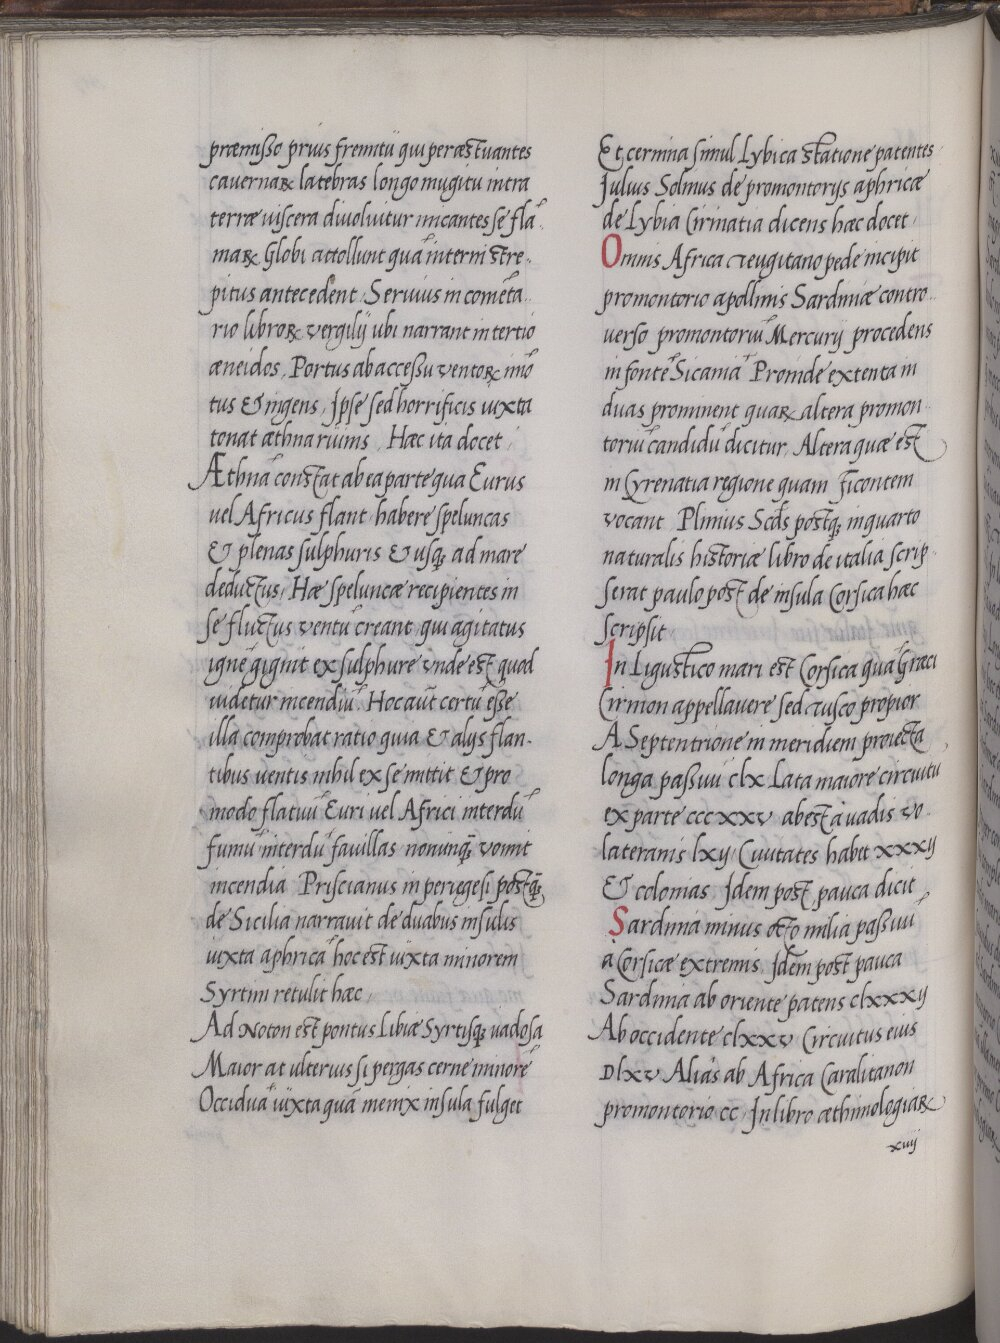 præmisso prius fremitu qui peræstuantes
cauernaꝝ latebras longo mugitu intra
terræ uiscera diuoluitur micantes se flã
maꝝ Globi attollunt quã interni stre
pitus antecedent Seruius in comẽta
rio libroꝝ vergilij ubi narrant in tertio
æneidos, Portus ab accessu ventoꝝ imõ
tus & ingens, Ipse sed horrificis iuxta
tonat æthna ruinis, Hæc ita docet,
Æthnã constat ab ea parte qua Eurus
uel Africus flant habere speluncas
& plenas sulphuris & usqꝫ ad mare
deductus, Hæ speluncæ recipientes in
se fluctus ventũ creant qui agitatus
ignẽ gignit ex sulphure vnde est quod
uidetur incendiũ Hoc aũt certũ esse
illa comprobat ratio quia & alys flan-
tibus uentis nihil ex se mittit & pro
modo flatuũ Euri uel Africi interdũ
fumũ interdũ fauillas nonunqꝫ vomit
incendia Priscianus in periegesi postqꝫ
de Sicilia narrauit de duabus insulis
iuxta aphricã hoc est iuxta minorem
Syrtim retulit hæc,
Ad Noton est pontus Libiæ Syrtisqꝫ uadosa
Maior at ulterius si pergas cerne minorẽ
Occiduã iuxta quã menix insula fulget
Et cermina simul Lybica statione patentes
Julius Solinus de promontorijs aphricæ
de Lybia Cirinatia dicens hæc docet,
Omnis Africa zeugitano pede incipit
promontorio apollinis Sardiniæ contro
verso promontoriũ Mercurij procedens
in fontẽ Sicaniã Proinde extenta in
duas prominent quaꝝ altera promon
toriũ candidũ dicitur, Altera quæ est
in Cyrenatia regione quam Ficontem
vocant Plinius Scds postqꝫ in quarto
naturalis historiæ libro de italia scrip
serat paulo post de insula Corsica hæc
scripsit
In Ligustico mari est Corsica quã Græci
Cirmon appellauere sed tusco propior
A Septentrione in meridiem proiecta
longa passuũ clx Lata maiore circuitu
ex parte cccxxv abest à uadis vo
lateranis lxij Ciuitates habet xxxij
& colonias Idem post pauca dicit,
Sardinia minus octo milia passuũ
a Corsicæ extremis Idem post pauca
Sardinia ab oriente patens clxxxij
Ab occidente clxxv Circuitus eius
Dlxv Aliàs ab Africa Caralitanon
promontorio cc In libro æthimologiaꝝ
xuij